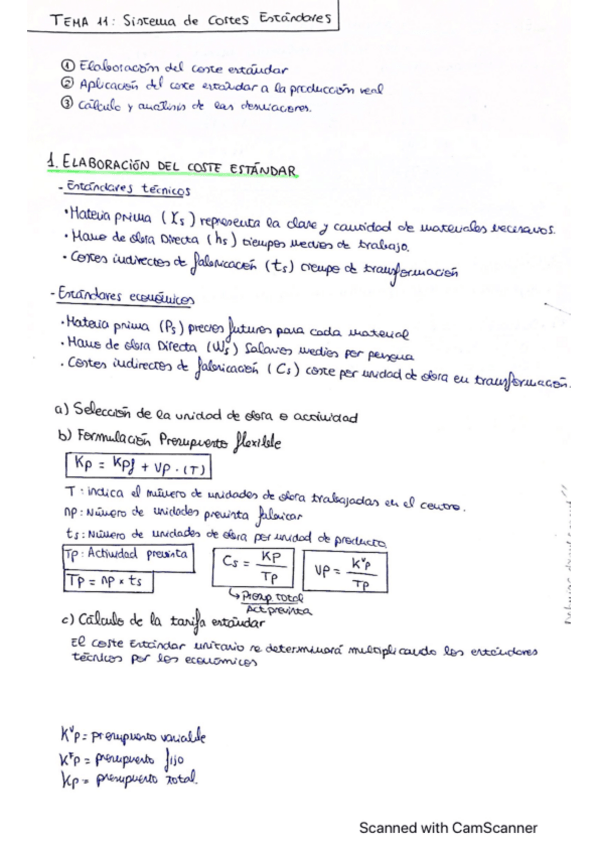 TEMA 11: Sistema de Costes Estándares
① Elaboración del coste estándar
② Aplicación del coste estándar a la producción real
③ Cálculo y analisis de las desviaciones.
1. ELABORACIÓN DEL COSTE ESTÁNDAR
- Estándares técnicos
• Materia prima (Xs) representa la clase y cantidad de materiales necesarios.
• Mano de obra Directa (hs) tiempos medios de trabajo.
• Costes indirectos de fabricación (ts) tiempo de transformación
- Estándares económicos
• Materia prima (Ps) precios futuros para cada material
• Mano de obra Directa (Ws) Salarios medios por persona
• Costes indirectos de fabricación (Cs) coste por unidad de obra en transformación.
a) Selección de la unidad de obra o actividad
b) Formulación Presupuesto flexible
Kp = Kpf + Vp · (T)
T: indica el número de unidades de obra trabajadas en el centro.
np: Número de unidades prevista fabricar
ts: Número de unidades de obra por unidad de producto
Tp: Actividad prevista
Tp = np × ts
Cs = Kp / Tp
Vp = KᵛP / Tp
↳ Presup. total
Act prevista
c) Cálculo de la tarifa estándar
El coste Estándar unitario se determinará multiplicando los estándares
técnicos por los económicos
Kᵛp = presupuesto variable
Kᶠp = presupuesto fijo
Kp = presupuesto total.
Scanned with CamScanner